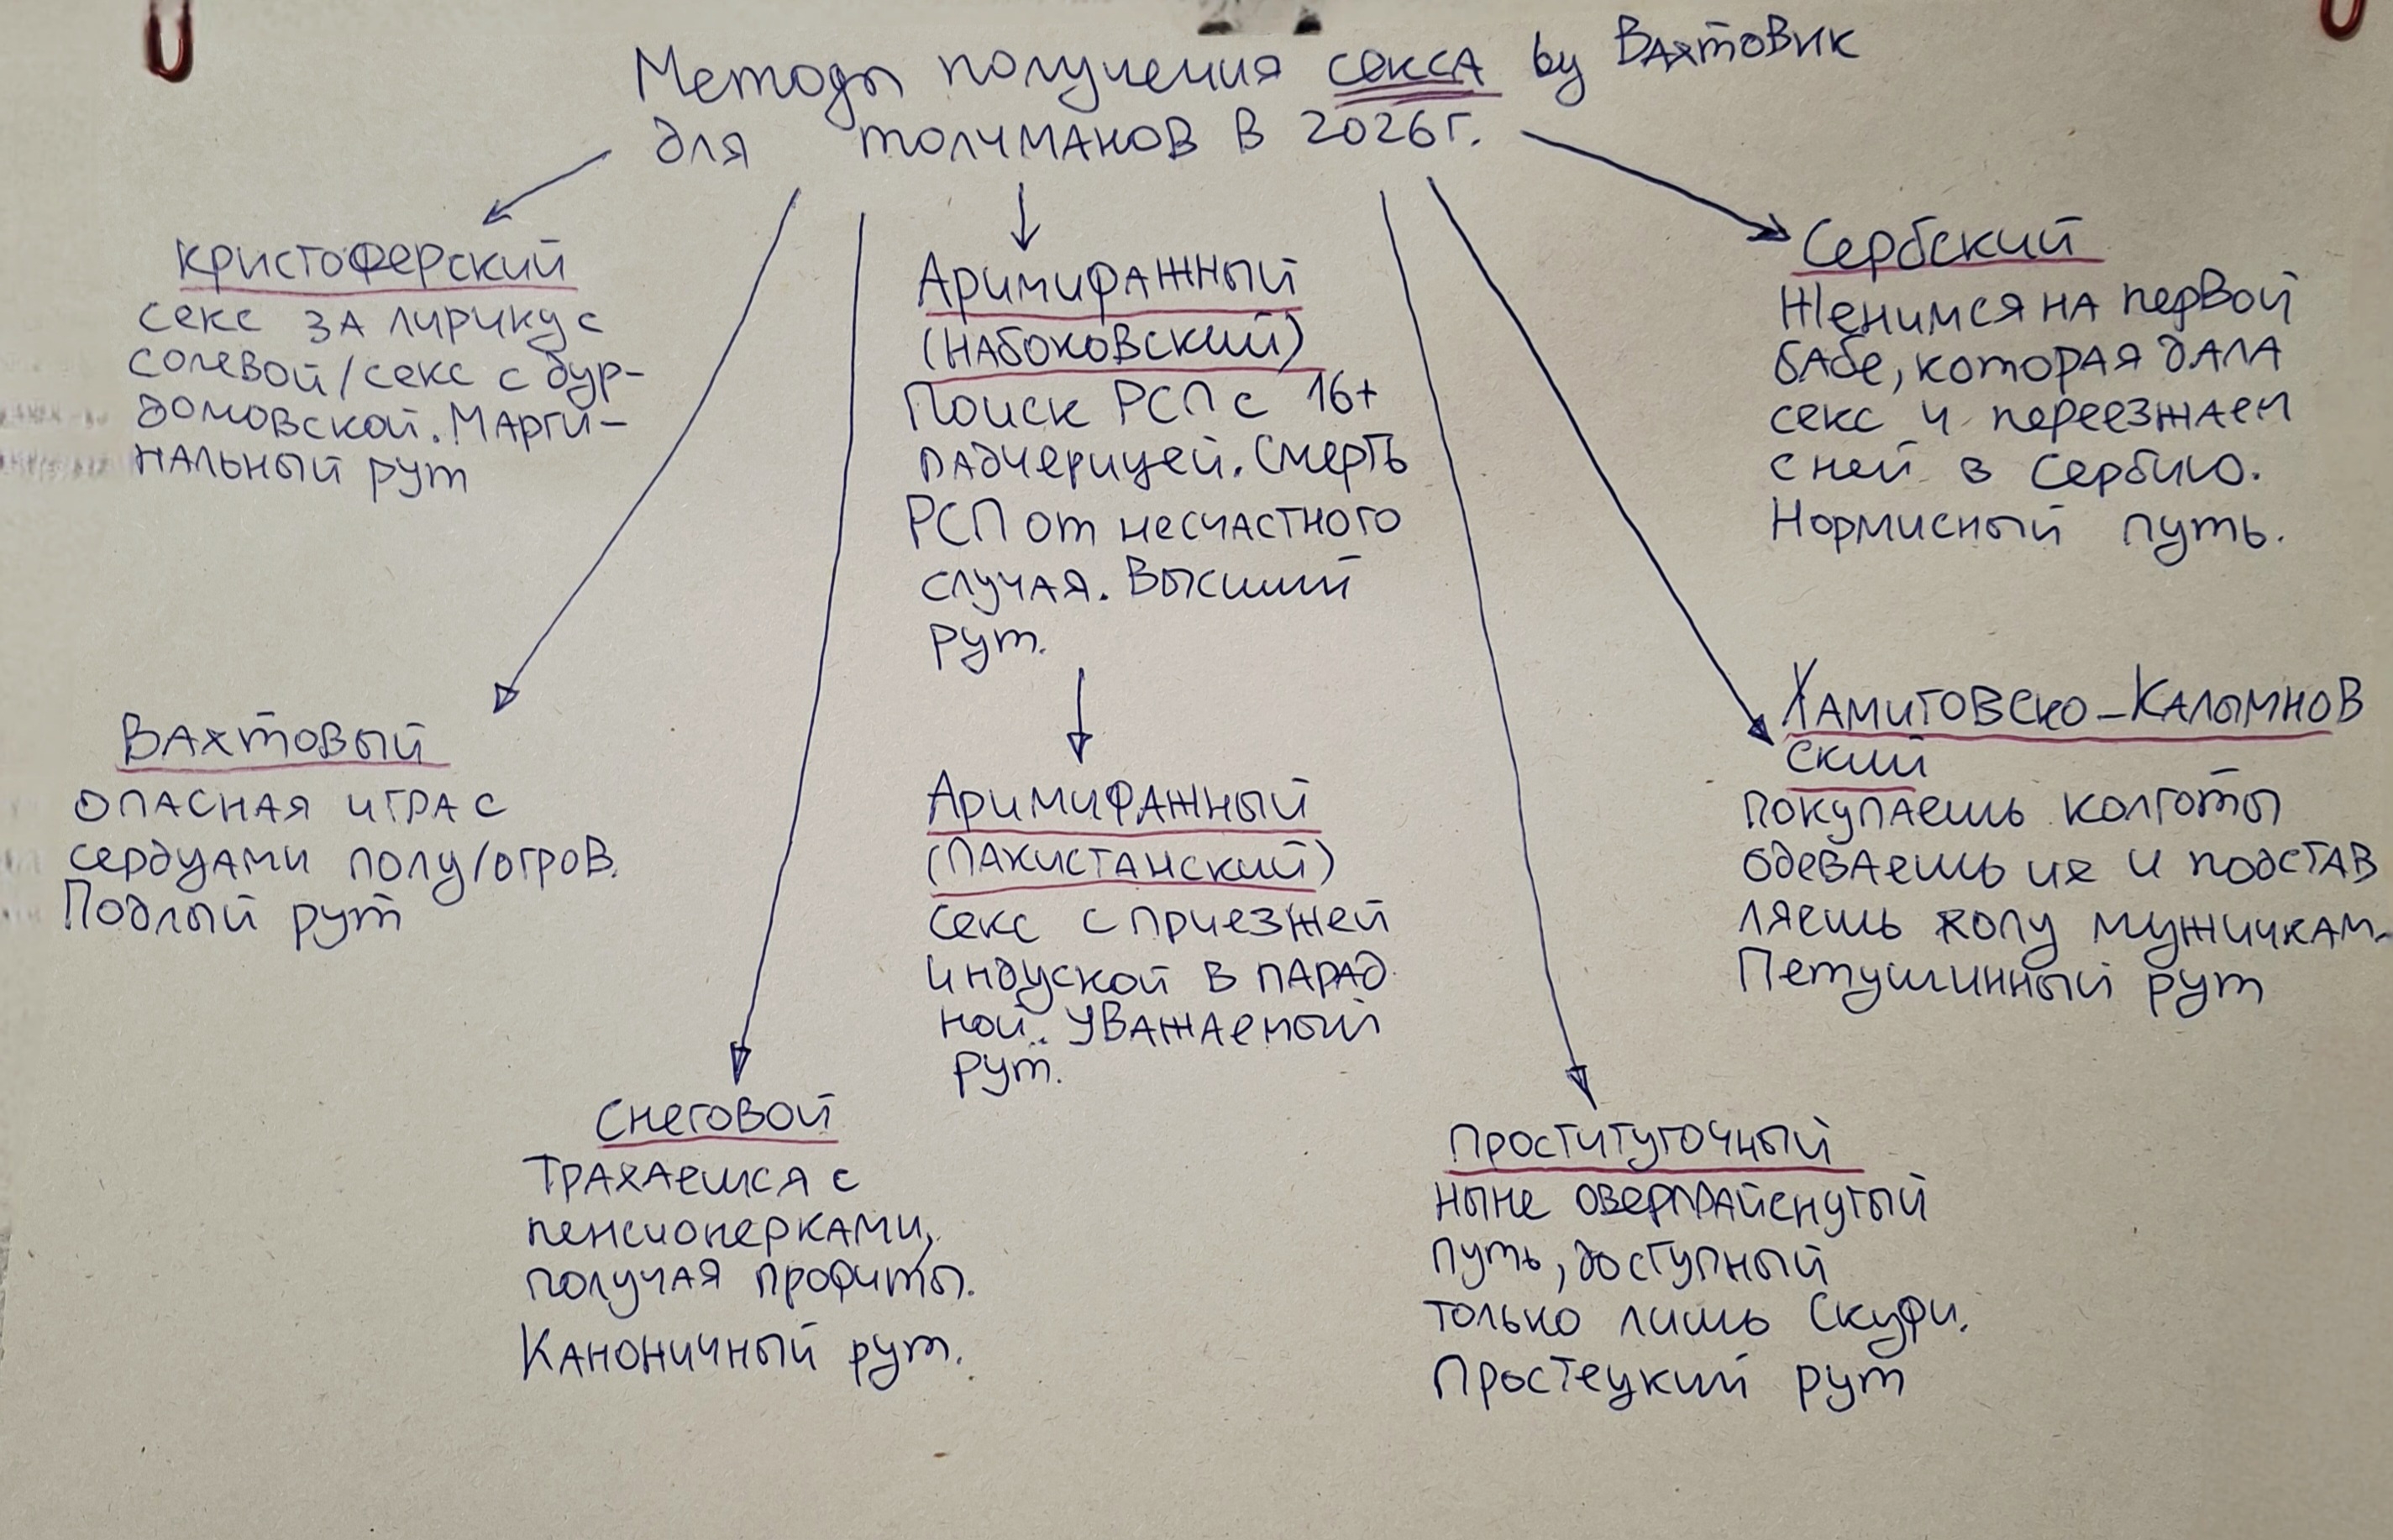 Методы получения секса by Вахтовик
для толчманов в 2026г.
Кристоферский
секс за лирику с
солевой/секс с дур-
домовской. Марги-
нальный рут
Аримифажный
(Набоковский)
Поиск РСП с 16+
падчерицей. Смерть
РСП от несчастного
случая. Высший
рут.
Сербский
Женимся на первой
бабе, которая дала
секс и переезжаем
с ней в Сербию.
Нормисный путь.
Вахтовый
опасная игра с
сердцами полу/огров.
Подлый рут
Аримифажный
(Пакистанский)
секс с приезжей
индуской в парад
ной. Уважаемый
рут.
Хамитовско-Калымнов
ский
покупаешь колготы
одеваешь их и подстав
ляешь жопу мужичкам.
Петушинный рут
Снеговой
Трахаешся с
пенсионерками,
получая профиты.
Каноничный рут.
Проститугочный
ныне оверпрайснутый
путь, доступный
только лишь Скуфи.
Простецкий рут